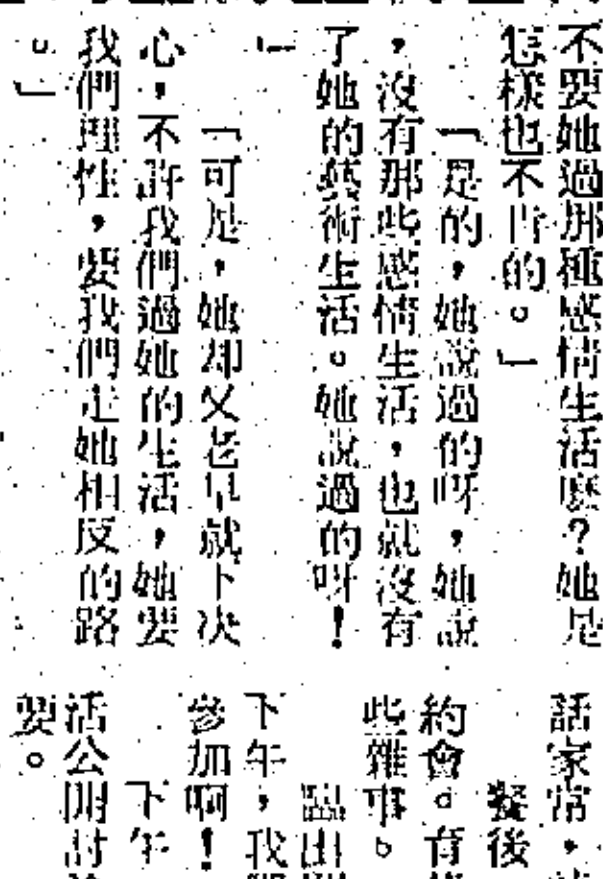 不要她過那種感情生活麽？她是
怎樣也不肯的。」
「是的，她說過的呀，她說
，沒有那些感情生活，也就沒有
了她的藝術生活。她說過的呀！
」
「可是，她却又老早就下决
心，不許我們過她的生活，她要
我們理性，要我們走她相反的路
。」
話家常，
餐後
約會。有
些雜事。
臨出
下午，我
參加啊！
下午
活公開討
要。